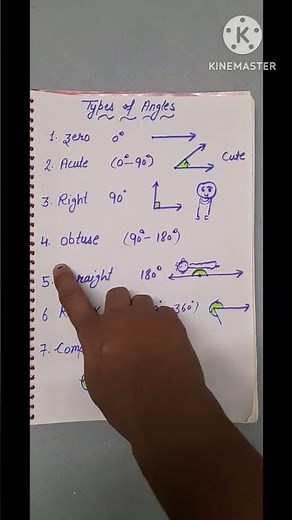 KINEMASTER
Types of Angles
1. Zero 0°
2. Acute (0°-90°) Cute
3. Right 90°
4. Obtuse (90°-180°)
5. 180°
6 360°)
7.